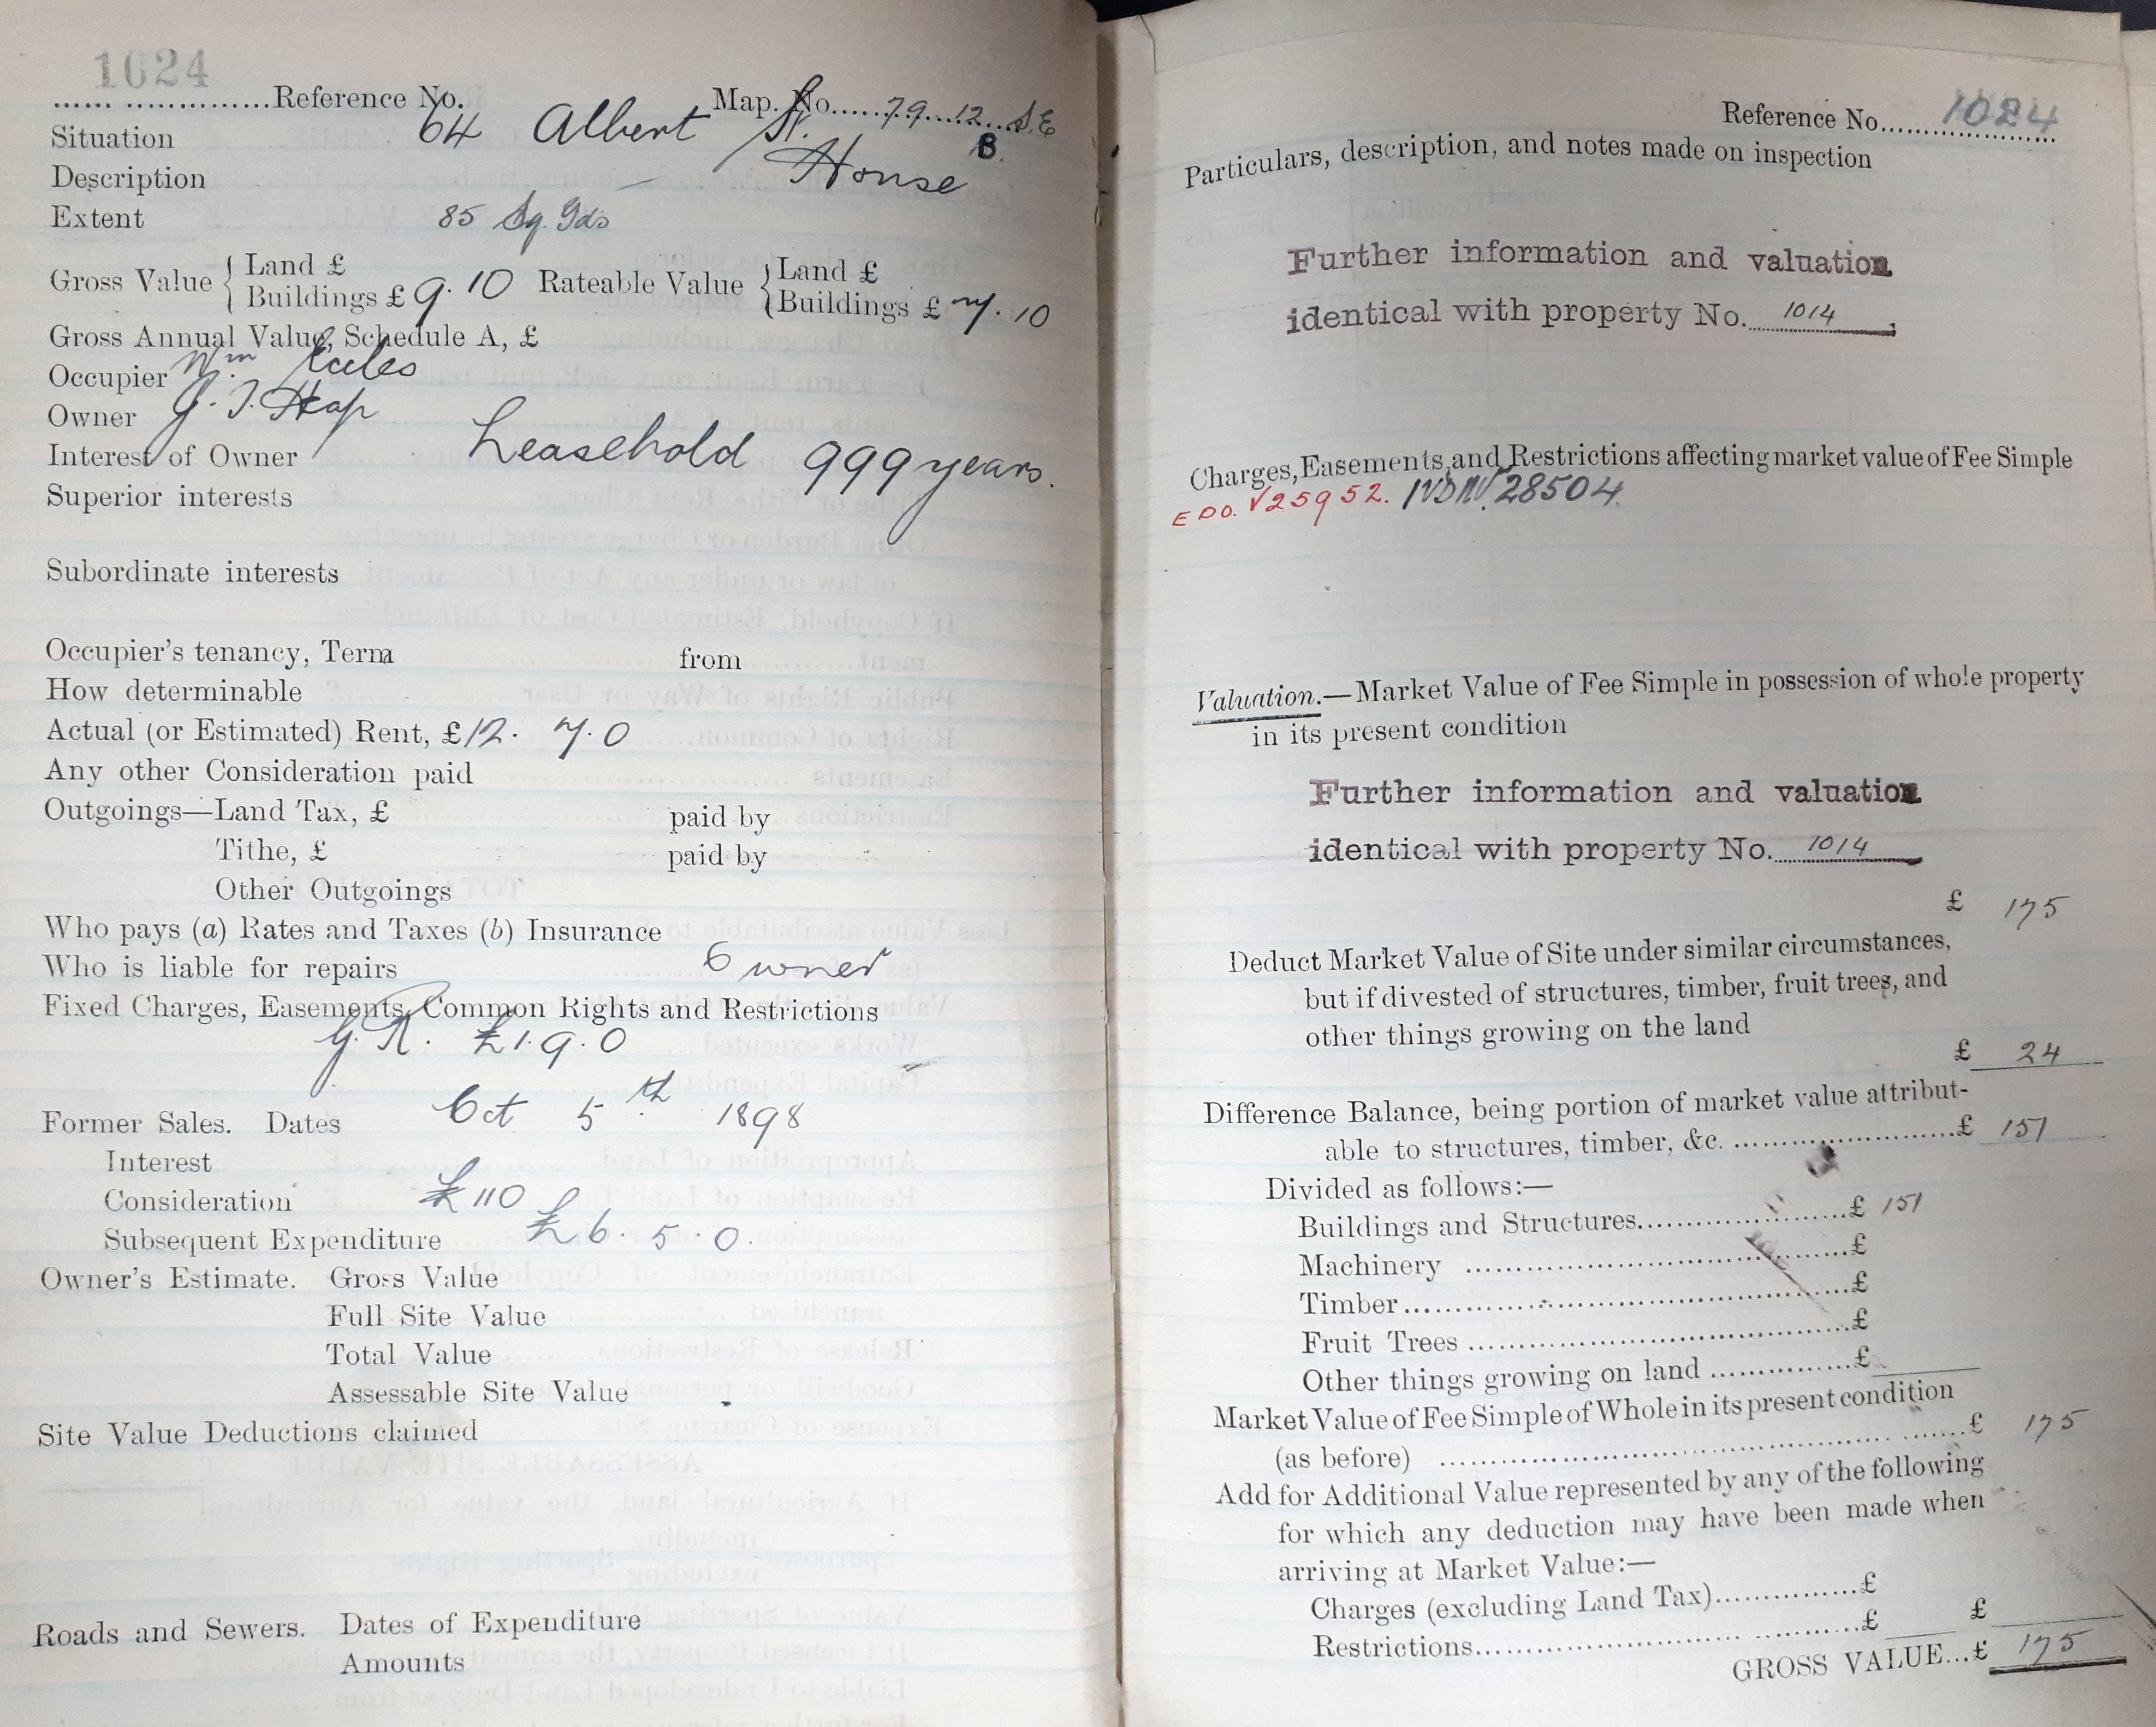 1024
Reference No. Map. No. 79 12 S.E
B.
Situation 64 Albert St.
Description House
Extent 85 Sq. Yds
Gross Value { Land £ Rateable Value { Land £
Buildings £ 9.10 Buildings £ 7.10
Gross Annual Value, Schedule A, £
Occupier Wm Eccles
Owner J. T. Heap
Interest of Owner Leasehold 999 years.
Superior interests
Subordinate interests
Occupier's tenancy, Term from
How determinable
Actual (or Estimated) Rent, £ 12. 7.0
Any other Consideration paid
Outgoings—Land Tax, £ paid by
Tithe, £ paid by
Other Outgoings
Who pays (a) Rates and Taxes (b) Insurance
Who is liable for repairs Owner
Fixed Charges, Easements, Common Rights and Restrictions
G.R. £1.9.0
Former Sales. Dates Oct 5th 1898
Interest
Consideration £110
Subsequent Expenditure £6.5.0.
Owner's Estimate. Gross Value
Full Site Value
Total Value
Assessable Site Value
Site Value Deductions claimed
Roads and Sewers. Dates of Expenditure
Amounts
Reference No. 1024
Particulars, description, and notes made on inspection
Further information and valuation
identical with property No. 1014
Charges, Easements, and Restrictions affecting market value of Fee Simple
EDO. √25952. 28504.
Valuation.—Market Value of Fee Simple in possession of whole property
in its present condition
Further information and valuation
identical with property No. 1014
£ 175
Deduct Market Value of Site under similar circumstances,
but if divested of structures, timber, fruit trees, and
other things growing on the land
£ 24
Difference Balance, being portion of market value attribut-
able to structures, timber, &c. £ 151
Divided as follows:—
Buildings and Structures £ 151
Machinery £
Timber £
Fruit Trees £
Other things growing on land £
Market Value of Fee Simple of Whole in its present condition
(as before) £ 175
Add for Additional Value represented by any of the following
for which any deduction may have been made when
arriving at Market Value:—
Charges (excluding Land Tax) £
Restrictions £ £
GROSS VALUE...£ 175